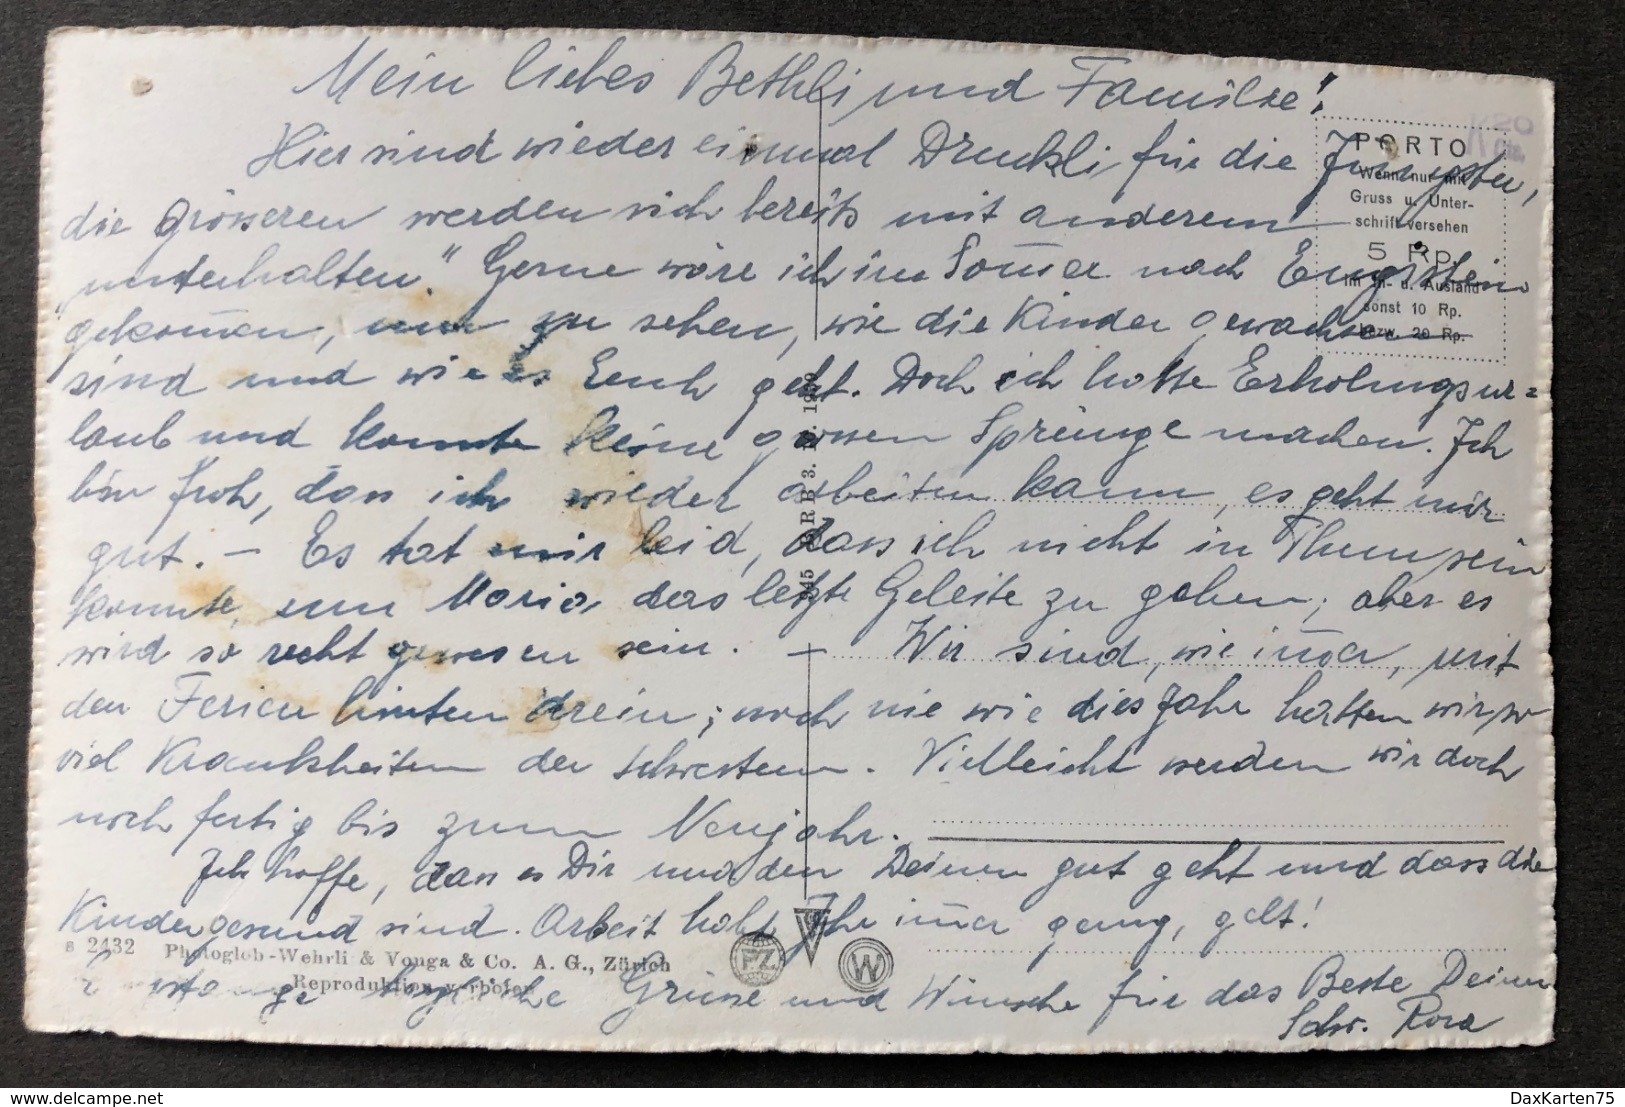 Mein liebes Bethli und Familie!
Hier sind wieder einmal Druckli für die Jüngsten,
die grösseren werden sich bereits mit anderem
"unterhalten." Gerne wäre ich im Som̅er nach Engstein
gekom̅en, um zu sehen, wie die Kinder gewachsen
sind und wie es Euch geht. Doch ich hatte Erholungsur=
laub und konnte keine grossen Sprünge machen. Ich
bin froh, dass ich wieder arbeiten kann, es geht mir
gut. – Es tat mir leid, dass ich nicht in Thun sein
konnte, um Maria das letzte Geleite zu geben; aber es
wird so recht gewesen sein. – Wir sind, wie im̅er, mit
den Ferien hinten drein; noch nie wie dies Jahr hatten wir so
viel Krankheiten der Schwestern. Vielleicht werden wir doch
noch fertig bis zum Neujahr.
Ich hoffe, dass es Dir und den Deinen gut geht und dass die
Kinder gesund sind. Arbeit habt Ihr im̅er genug, gelt!
herzliche Grüsse und Wünsche für das Beste Deine
Schw. Rosa
PORTO
Wenn nur mit
Gruss u. Unter-
schrift versehen
5 Rp.
im In- u. Ausland
sonst 10 Rp.
bezw. 20 Rp.
s 2432 Photoglob-Wehrli & Vouga & Co. A. G., Zürich
Reproduktion verboten
PZ
V
W
delcampe.net
DaxKarten75